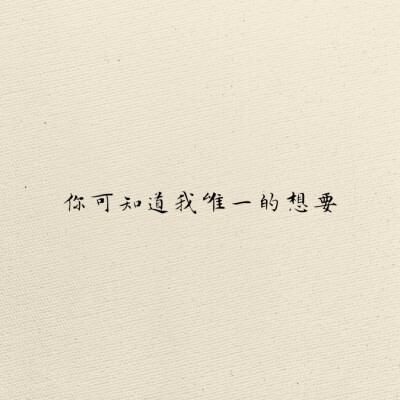 你可知道我唯一的想要